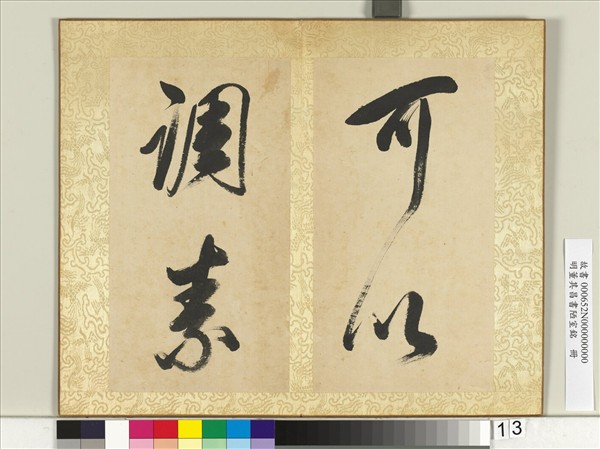 可以
調素
故書 000652N000000000
明董其昌書陋室銘 冊
13